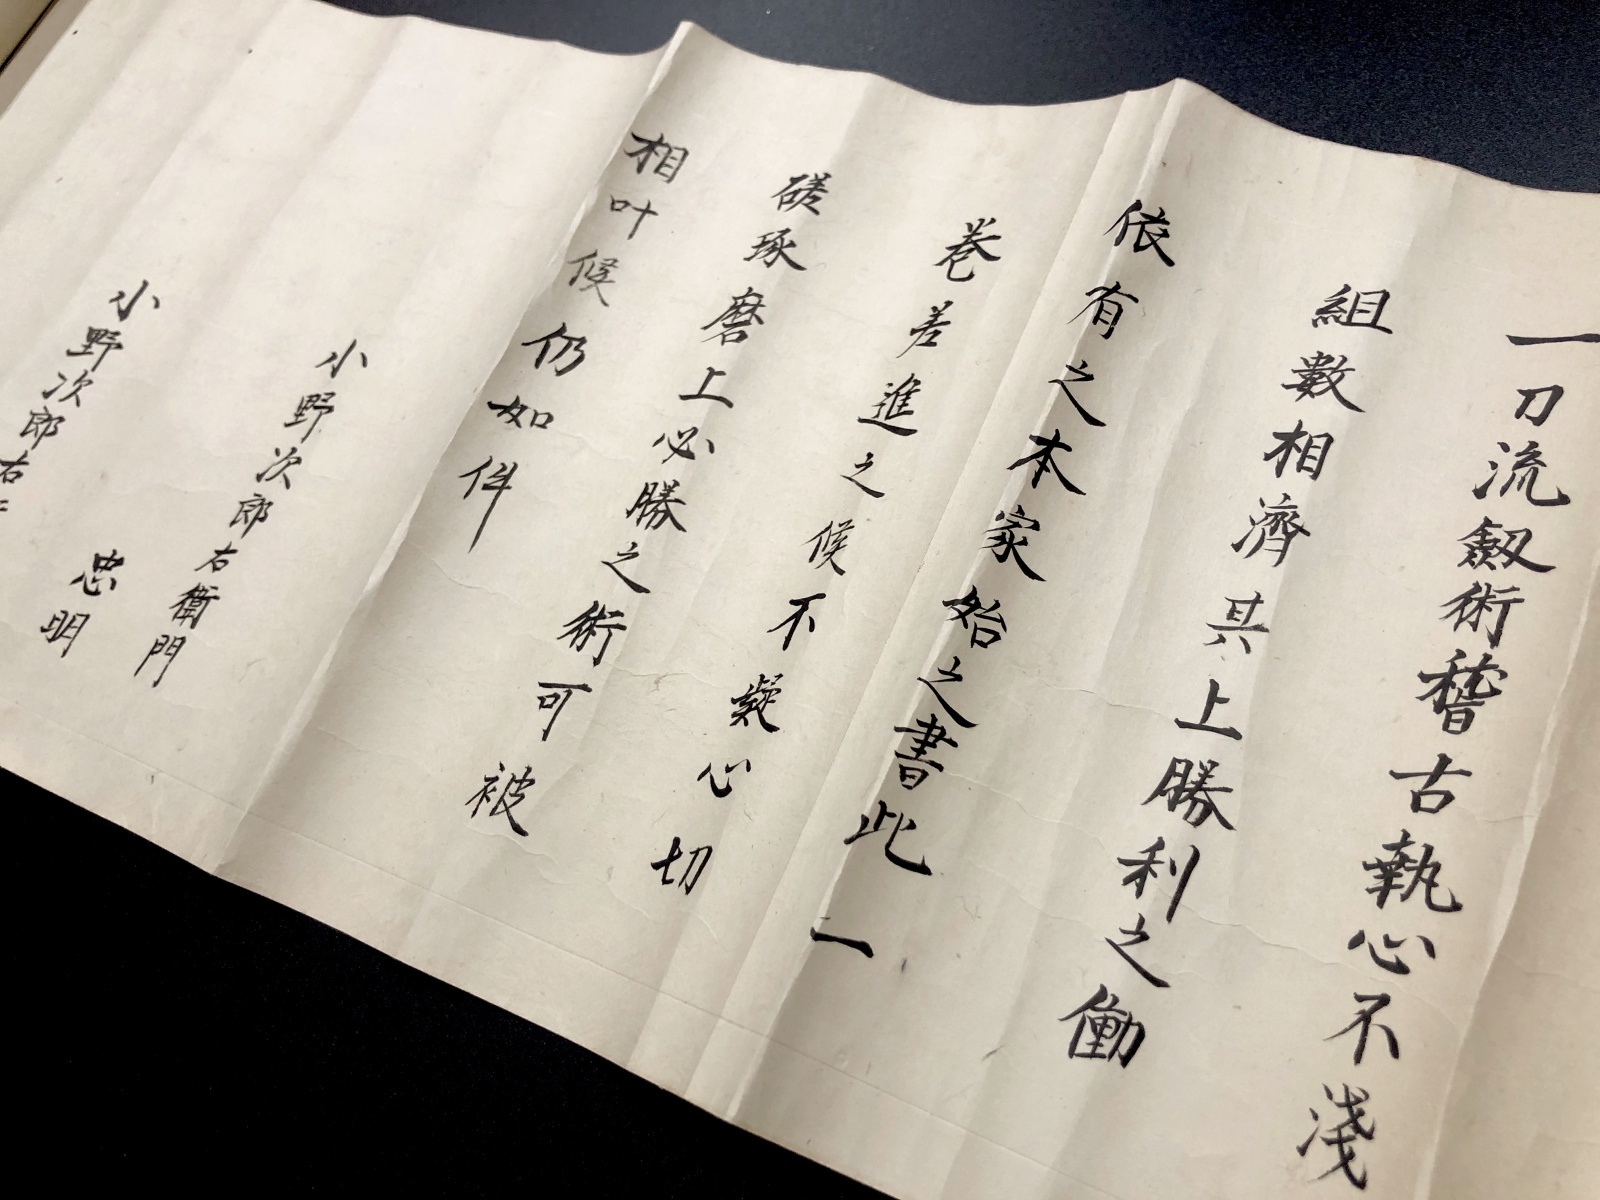 一刀流劔術稽古執心不淺
組數相濟其上勝利之働
依有之本家始之書此一
巻差進之候不疑心切
磋琢磨上必勝之術可被
相叶候仍如件
小野次郎右衛門
忠明
小野次郎右